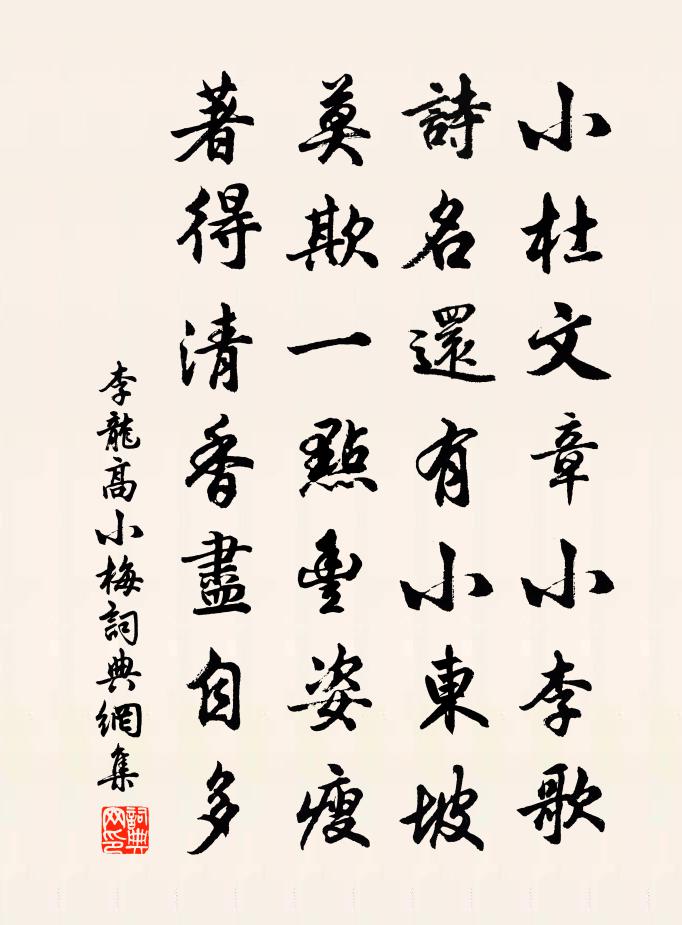 小杜文章小李歌
詩名還有小東坡
莫欺一點豐姿瘦
著得清香盡自多
李龍高小梅詞典網集
詞典
网印